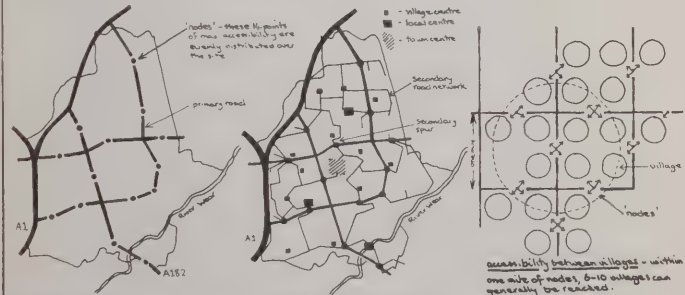 'nodes' - these 16 points
of max accessibility are
evenly distributed over
the site
primary road
A1
River Wear
A182
- village centre
- local centre
- town centre
Secondary
road network
Secondary
spur
A1
River Wear
village
'nodes'
accessibility between villages - within
one mile of nodes, 6-10 villages can
generally be reached.